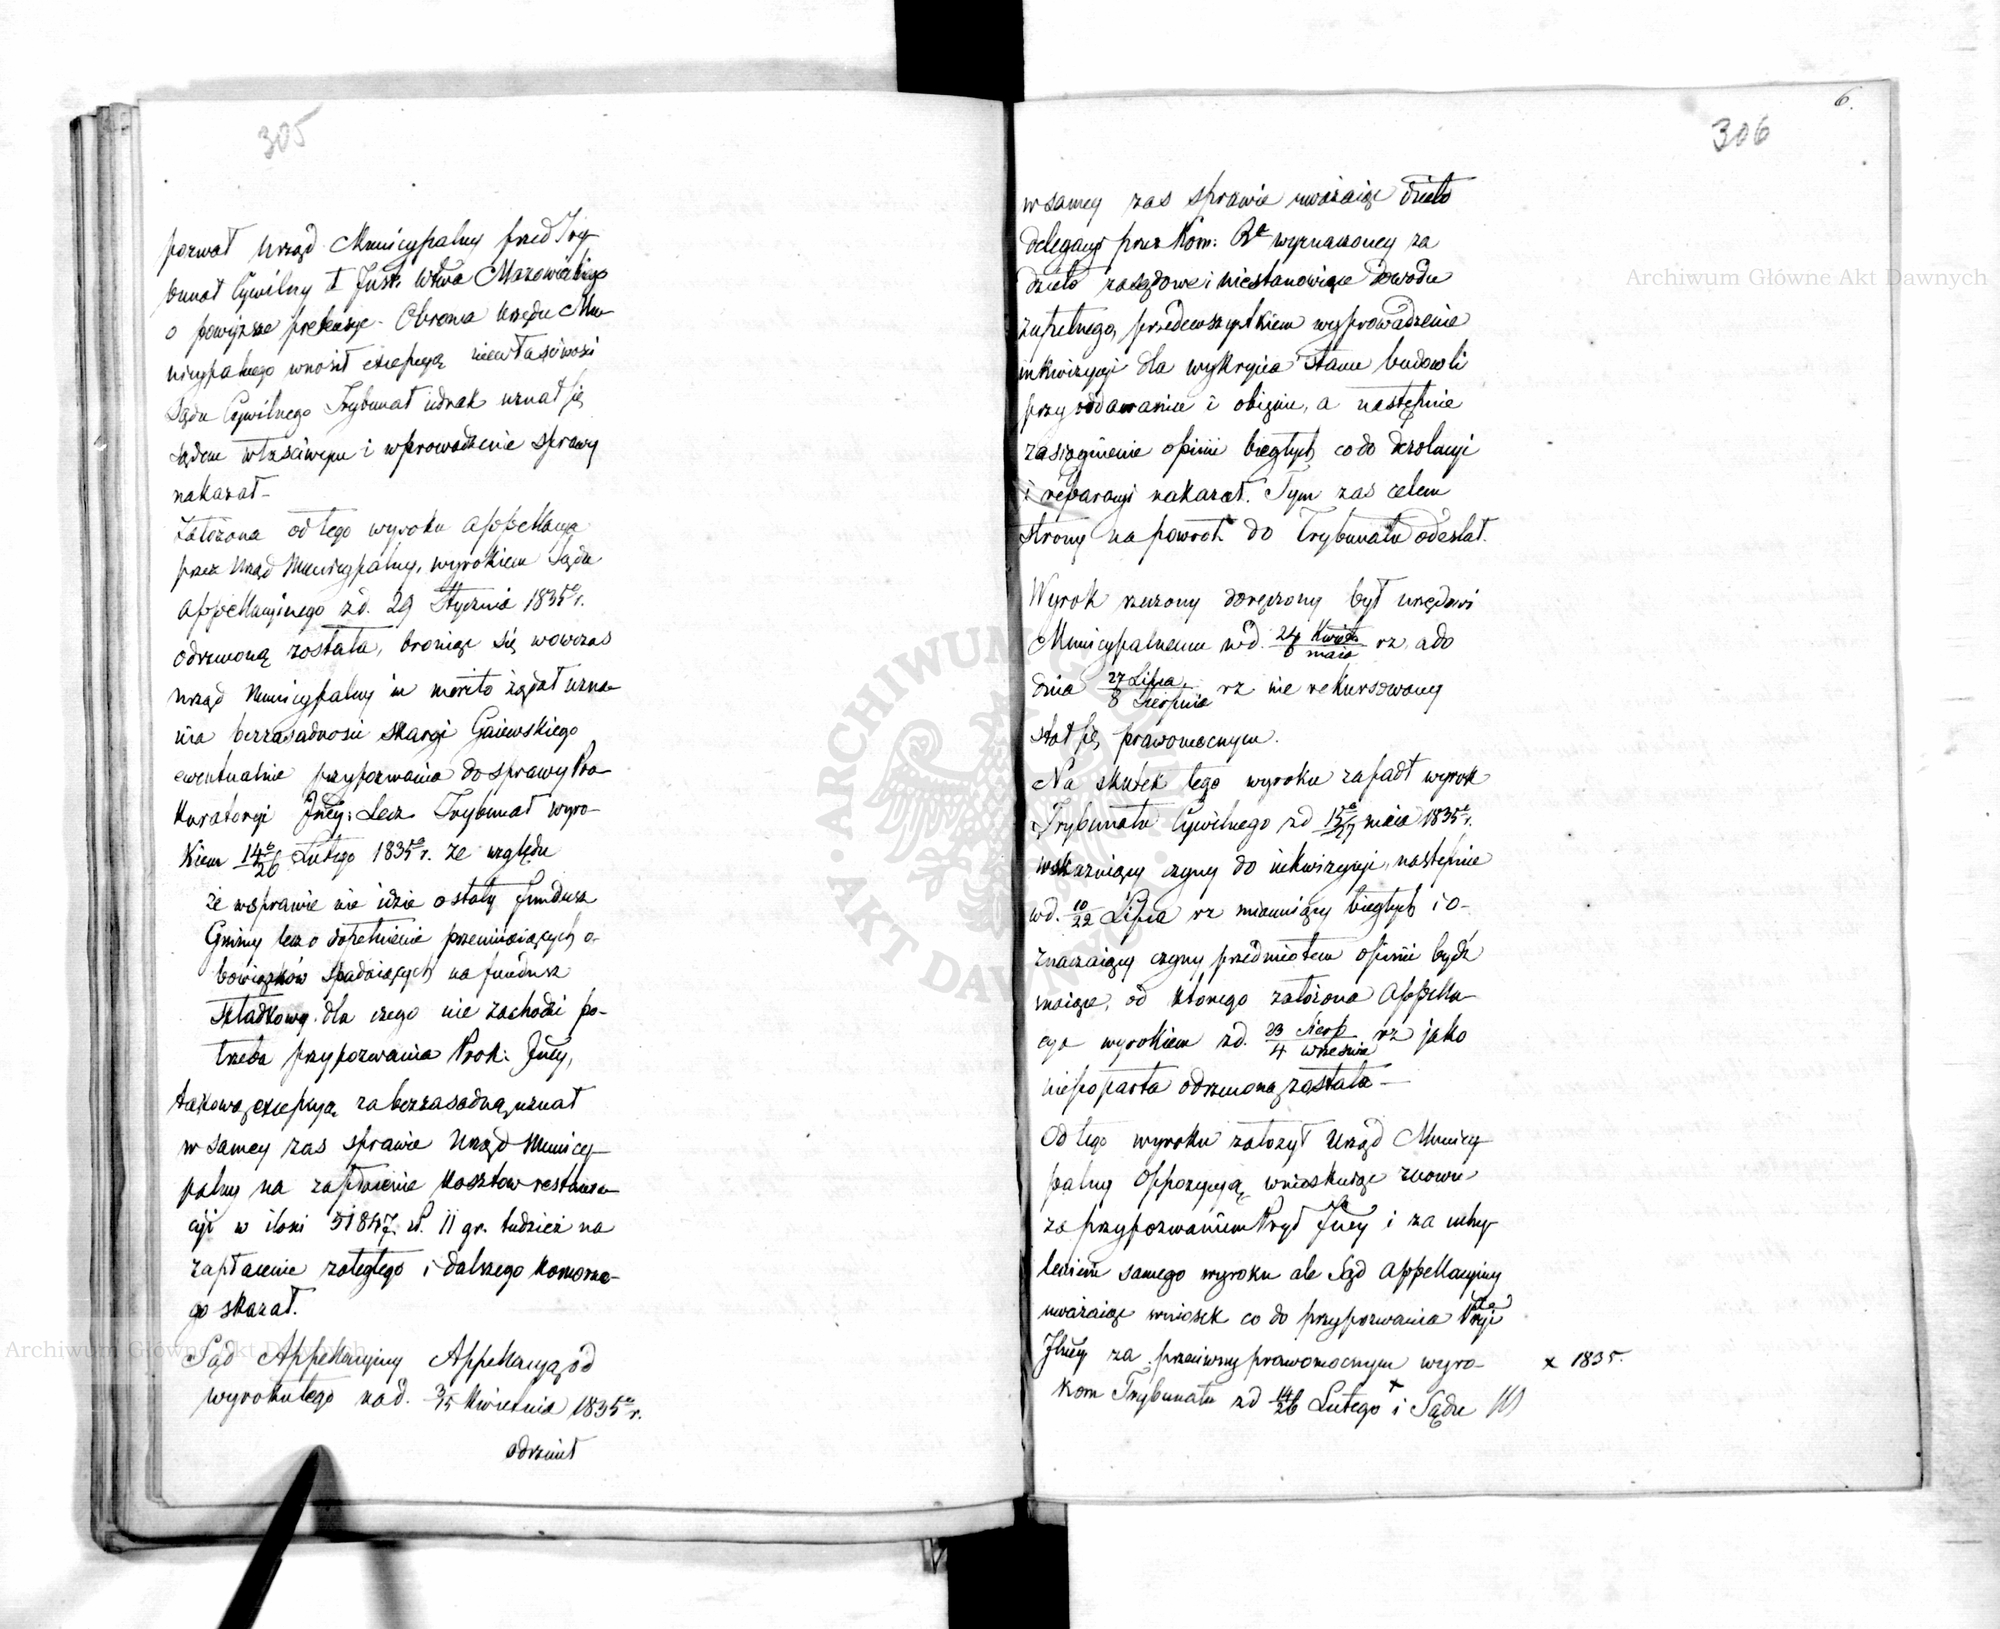 305
pozwał Urząd Municypalny przed Try-
bunał Cywilny I Just. Wtwa Mazowieckiego
o powyższe pretensye. Obrona Urzędu Mu-
nicypalnego wnosił excepcyą niewłaściwości
Sądu Cywilnego Trybunał iednak uznał się
Sądem właściwym i wprowadzenie sprawy
nakazał –
Założona od tego wyroku appellacya
przez Urząd Municypalny, wyrokiem Sądu
Appellacyinego z d. 29 Stycznia 1835 r.
odrzuconą została, broniąc się wowczas
Urząd Municypalny in merito żądał uzna-
nia bezzasadności skargi Gaiewskiego
ewentualnie przypozwania do sprawy Pro-
kuratoryi Jney: Lecz Trybunał wyro-
kiem 14/26 Lutego 1835 r. ze względu
że w sprawie nie idzie o stały fundusz
Gminy lecz o dopełnienie przemiiaiących o-
bowiązków spadaiących na fundusz
składkowy. dla czego nie zachodzi po-
trzeba przypozwania Prok: Jney,
takową excepcyą za bezzasadną uznał
w samey zas sprawie Urząd Municy-
palny na zapłacenie kosztow restaura-
cyi w ilości 51847 zł. 11 gr. tudzież na
zapłacenie zaległego i dalszego komorne-
go skazał.
Sąd Appellacyiny Appellacyą od
wyroku tego na d. 3/15 Kwietnia 1835 r.
odrzucił
6.
306
w samey zas sprawie uważaiąc dzieło
delegacyi przez Kom: Rz wyznaczoney za
dzieło zasądowe i niestanowiące dowodu
zupełnego, przedewszystkiem wyprowadzenie
inkwizycyi dla wykrycia stanu budowli
przy oddawaniu i obięciu, a następnie
zasiągnienie opinii biegłych co do dezolacyi
i reparacyi nakazał. Tym zas celem
strony na powrót do Trybunału odesłał.
Wyrok rzeczony doręczony był urzędowi
Municypalnemu w d. 24 Kwiet./6 maia rz. a do
dnia 27 Lipca/8 Sierpnia rz nie rekursowany
stał się prawomocnym.
Na skutek tego wyroku zapadł wyrok
Trybunału Cywilnego z d 15/27 maia 1835 r.
wskazuiący czyny do inkwizycyi, następnie
w d. 10/22 Lipca rz mianuiący biegłych i o-
znaczaiący czyny przedmiotem opinii bydź
maiące, od ktorego założona Appella-
cya wyrokiem z d. 23 Sierp/4 września rz jako
niepoparta odrzucona została –
Od tego wyroku założył Urząd Municy-
palny Oppozycyą wnioskuiąc znowu
za przypozwaniem Jney i za uchy-
leniem samego wyroku ale Sąd Appellacyiny
uważaiąc wniosek co do przypozwania
Jlney za przeciwny prawomocnym wyro- x 1835.
kom Trybunału z d 14/26 Lutego x i Sądu